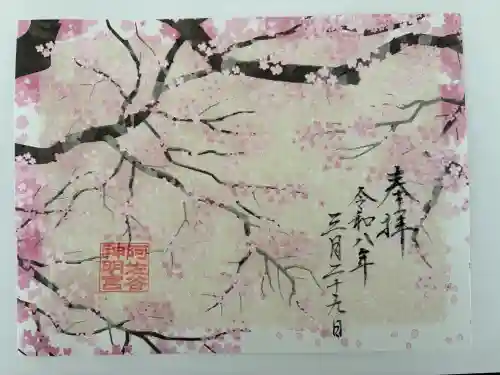 奉拝
令和八年
三月二十九日
阿佐谷
神明宮